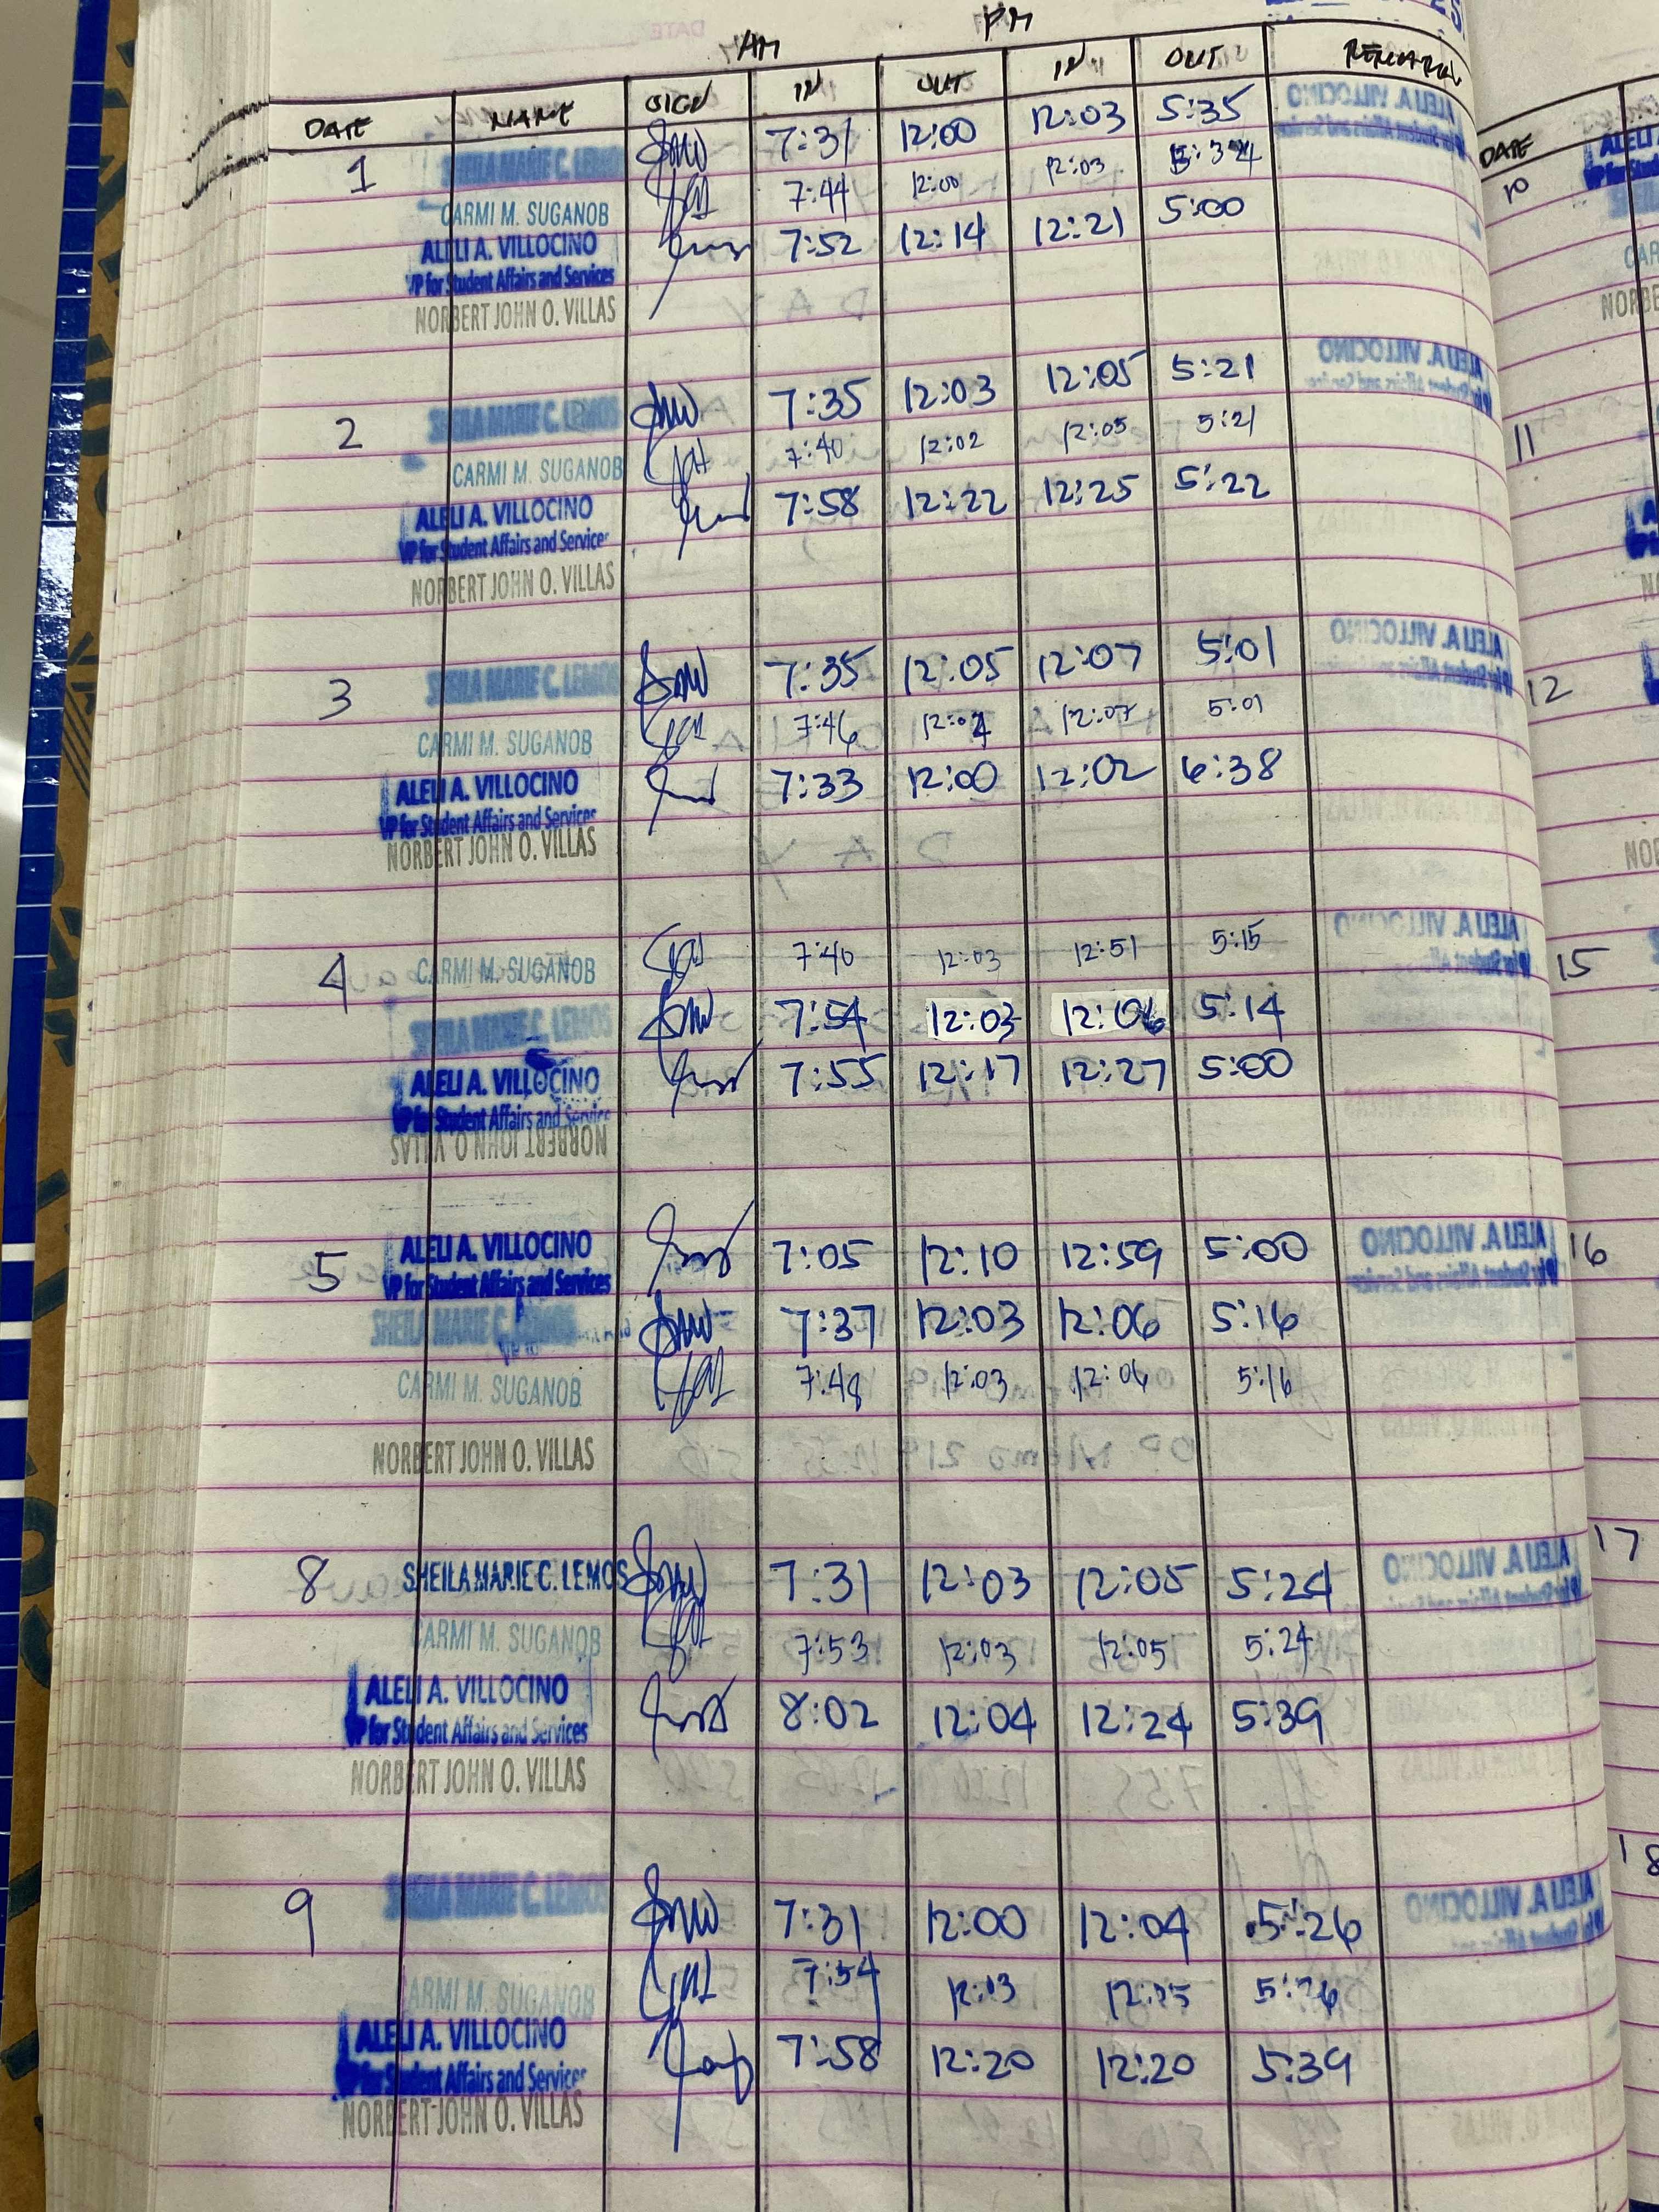 AM PM
DATE NAME SIGN IN OUT IN OUT REMARKS
1 SHEILA MARIE C. LEMOS 7:31 12:00 12:03 5:35
CARMI M. SUGANOB 7:44 12:00 12:03
ALELI A. VILLOCINO 7:52 12:14 12:21 5:00
VP for Student Affairs and Services
NORBERT JOHN O. VILLAS
2 SHEILA MARIE C. LEMOS 7:35 12:03 12:05 5:21
CARMI M. SUGANOB 7:40 12:02 12:05 5:21
ALELI A. VILLOCINO 7:58 12:22 12:25 5:22
VP for Student Affairs and Services
NORBERT JOHN O. VILLAS
3 SHEILA MARIE C. LEMOS 7:35 12:05 12:07 5:01
CARMI M. SUGANOB 7:46 12:07 5:01
ALELI A. VILLOCINO 7:33 12:00 12:02 6:38
VP for Student Affairs and Services
NORBERT JOHN O. VILLAS
4 CARMI M. SUGANOB 7:40 12:03 12:51 5:15
SHEILA MARIE C. LEMOS 7:54 12:03 12:06 5:14
ALELI A. VILLOCINO 7:55 12:17 12:27 5:00
VP for Student Affairs and Service
NORBERT JOHN O. VILLAS
5 ALELI A. VILLOCINO 7:05 12:10 12:59 5:00
VP for Student Affairs and Services
SHEILA MARIE C. LEMOS 7:37 12:03 12:06 5:16
CARMI M. SUGANOB 7:48 12:03 12:06 5:16
NORBERT JOHN O. VILLAS
8 SHEILA MARIE C. LEMOS 7:31 12:03 12:05 5:24
CARMI M. SUGANOB 7:53 12:03 12:05 5:24
ALELI A. VILLOCINO 8:02 12:04 12:24 5:39
VP for Student Affairs and Services
NORBERT JOHN O. VILLAS
9 SHEILA MARIE C. LEMOS 7:31 12:00 12:04 5:26
CARMI M. SUGANOB 7:54 5:26
ALELI A. VILLOCINO 7:58 12:20 12:20 5:39
VP for Student Affairs and Services
NORBERT JOHN O. VILLAS
DATE
10
11
12
15
16
17
18